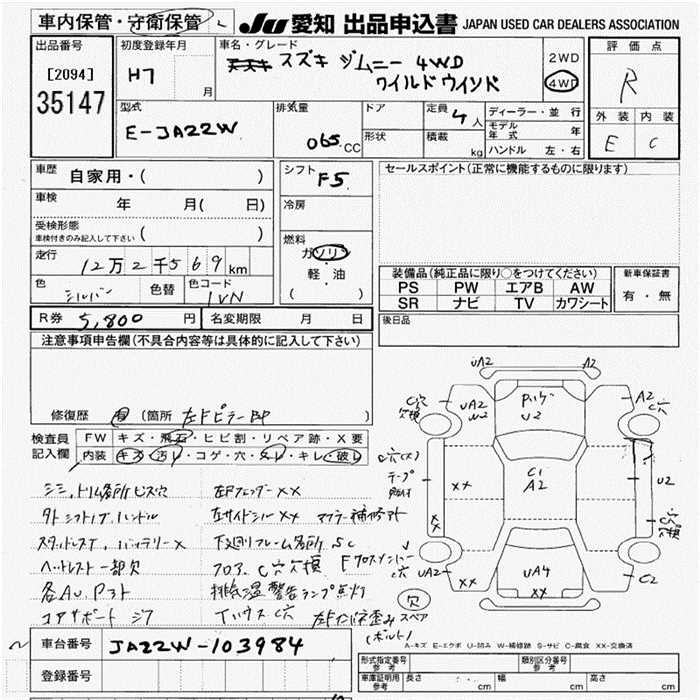 車内保管・守衛保管
JU 愛知 出品申込書 JAPAN USED CAR DEALERS ASSOCIATION
出品番号
[2094]
35147
初度登録年月
H7
月
車名・グレード
スズキ ジムニー 4WD
ワイルドウインド
2WD
4WD
評価点
R
外装 内装
E C
型式
E-JA22W
排気量
065 CC
ドア
形状
定員 4 人
積載 kg
ディーラー・並行
モデル年式 年
ハンドル 左・右
車歴 自家用・( )
車検 年 月( 日)
受検形態
車検付きのみ記入して下さい ( )
走行 12万2千569km
色 シルバー 色替 色コード 1VN
シフト F5.
冷房
燃料
ガソリン
軽・油
( )
セールスポイント(正常に機能するものに限ります)
装備品(純正品に限り○をつけてください)
PS PW エアB AW
SR ナビ TV カワシート
新車保証書
有・無
R券 5,800 円 名変期限 月 日
後日品
注意事項申告欄(不具合内容等は具体的に記入して下さい)
修復歴 有 (箇所 左Fピラー 即
検査員記入欄
FW キズ・飛石・ヒビ割・リペア跡・X要
内装 キズ・汚レ・コゲ・穴・スレ・キレ・破レ
シミ,トリム各所ビス穴 左Fフェンダー XX
外シフトノブ,ハンドル 左サイドシルXX マフラー補修跡
スタッドレスT, バッテリーX 下廻りフレーム各所 SC
ヘッドレスト一部欠 フロア C穴欠損 Fクロスメンバーc穴
排気温警告ランプ点灯
コアサポート
Tハウス C穴
スペア
(ボルト)
UA2 A2
C穴欠損 UA2 A2 C穴
U2
C穴(大) テープ
XX C1 A2 U2
XX
C穴欠損
UA2 XX UA4 XX C2
欠
A-キズ E-エクボ U-凹み W-補修跡 S-サビ C-腐食 XX-交換済
車台番号 JA22W-103984
登録番号
形式指定番号 参考
類別区分番号 参考
車庫証明用 参考 長さ cm 幅 cm 高さ cm